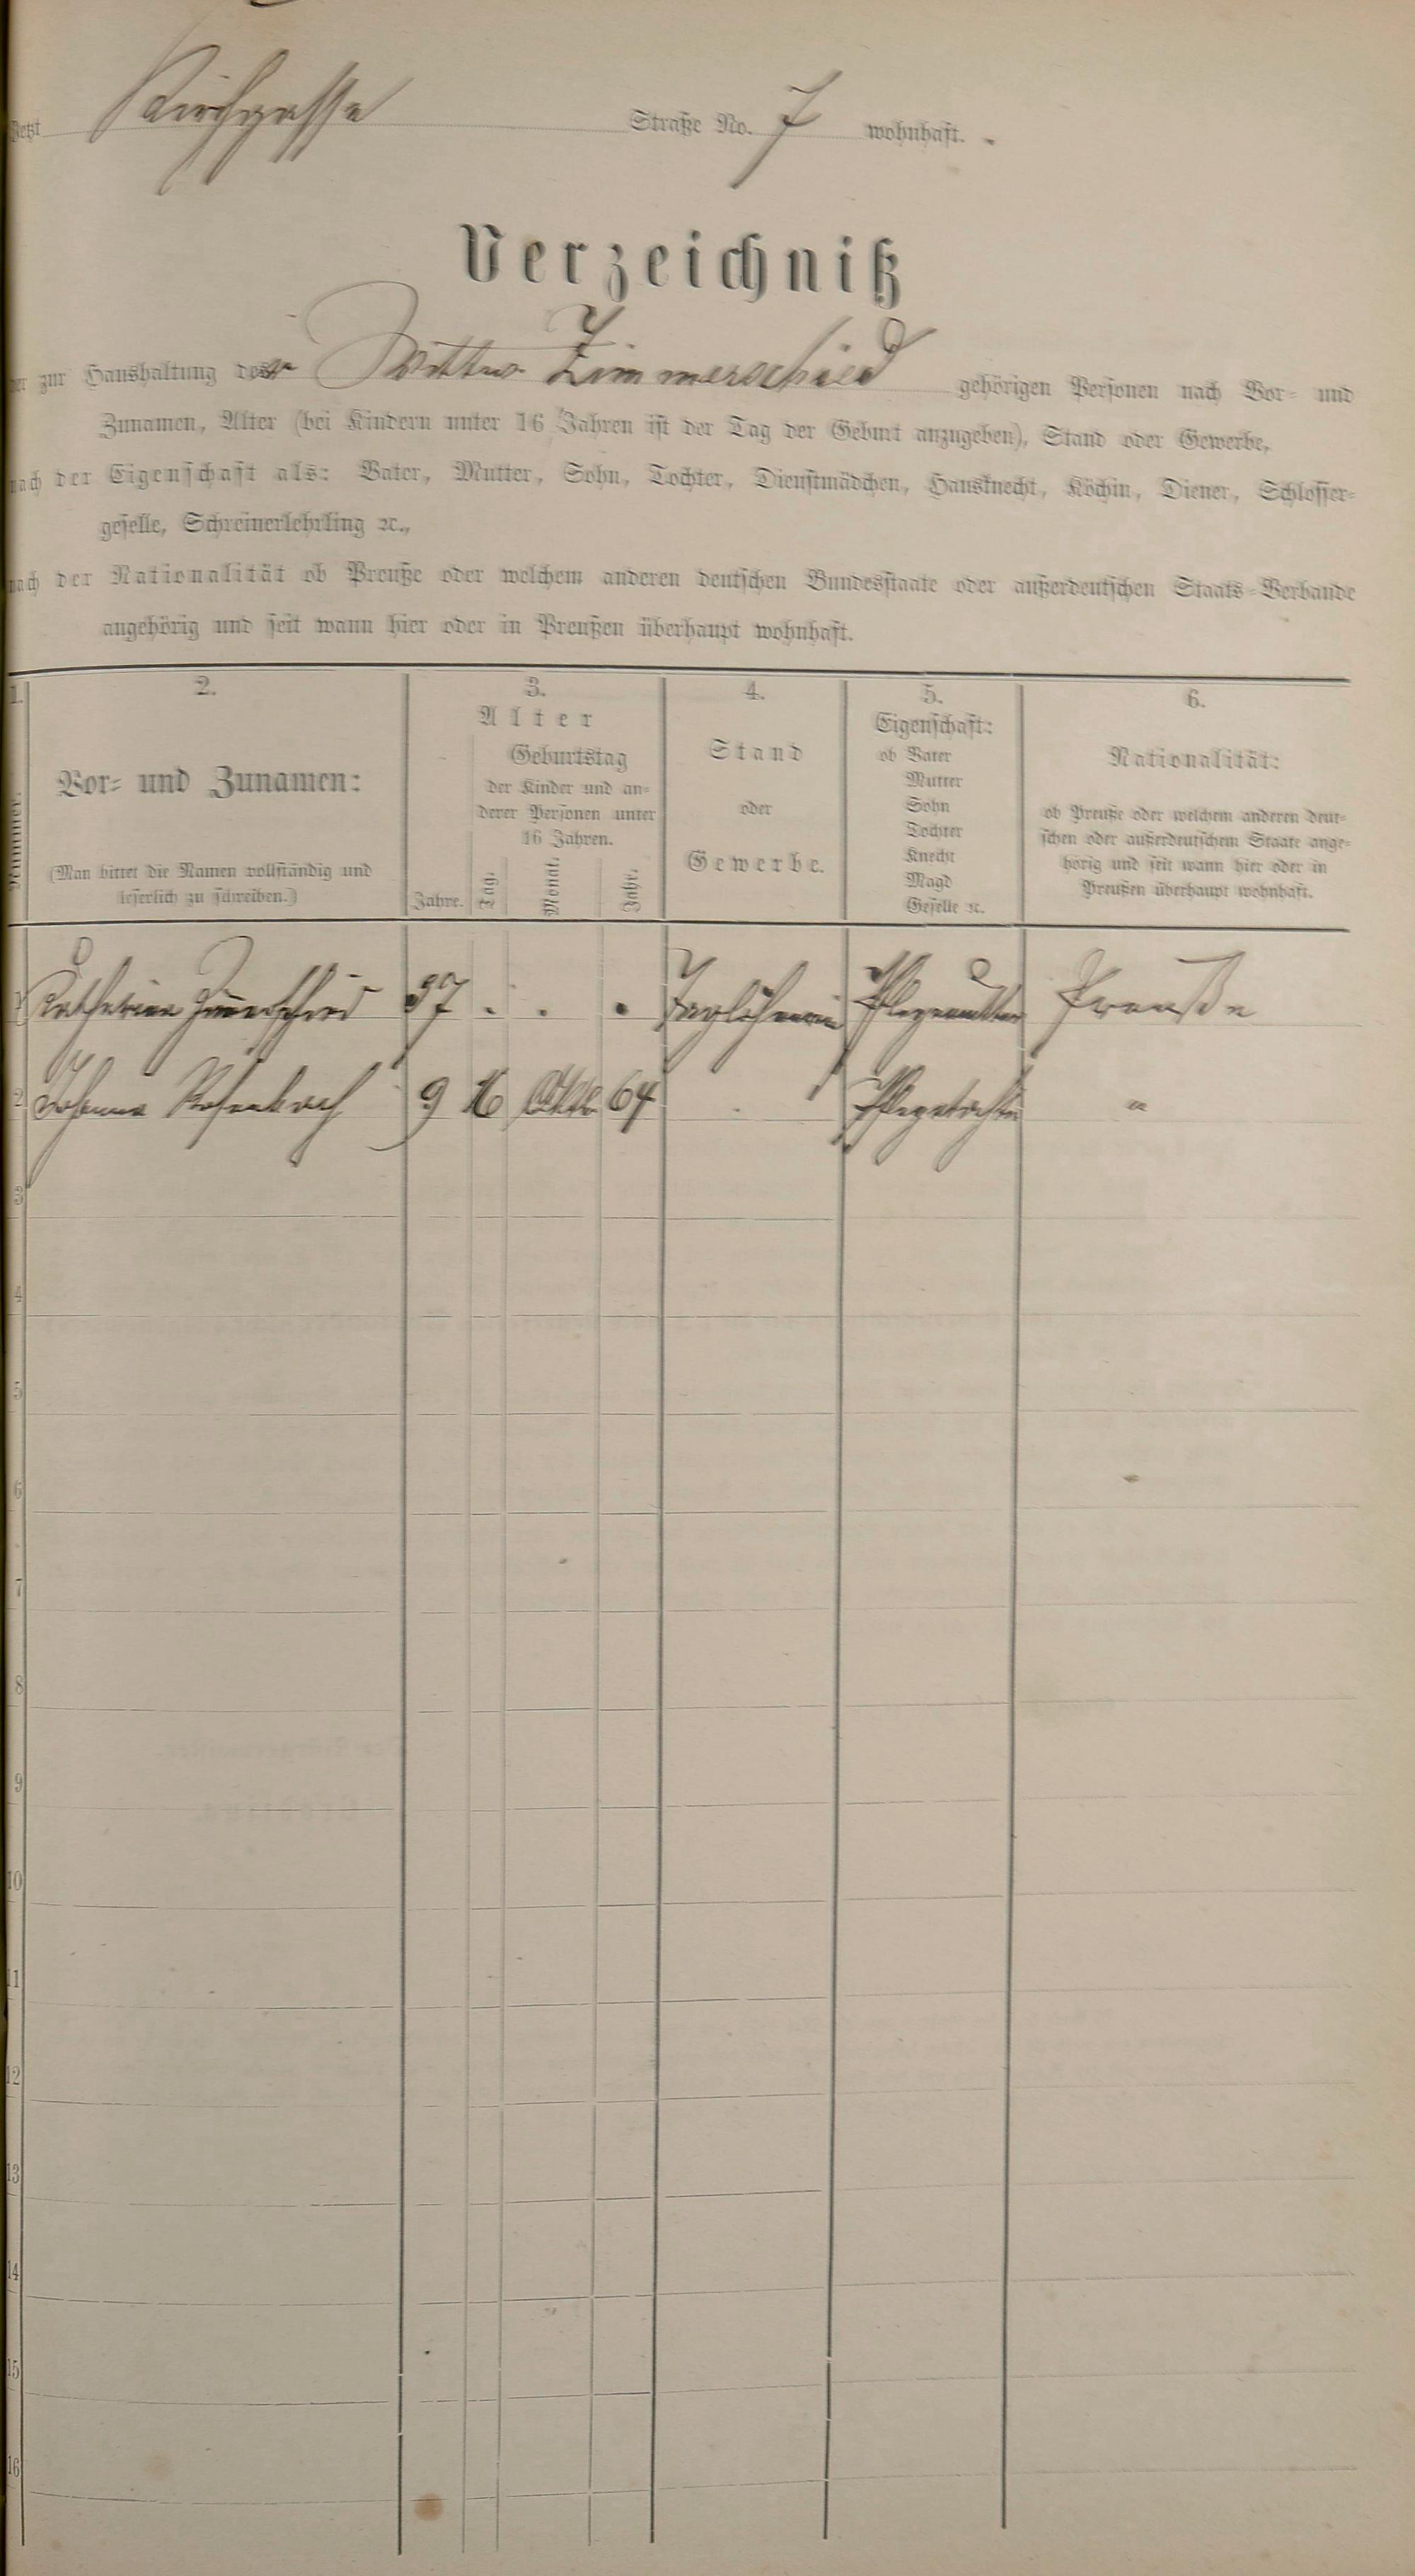 Jetzt Kirchgasse Straße No. 7 wohnhaft.
Verzeichniß
der zur Haushaltung der Wittwe Zimmerschied gehörigen Personen nach Vor- und
Zunamen, Alter (bei Kindern unter 16 Jahren ist der Tag der Geburt anzugeben), Stand oder Gewerbe,
nach der Eigenschaft als: Vater, Mutter, Sohn, Tochter, Dienstmädchen, Hausknecht, Köchin, Diener, Schlosser-
geselle, Schreinerlehrling ꝛc.,
nach der Nationalität ob Preuße oder welchem anderen deutschen Bundesstaate oder außerdeutschen Staats-Verbande
angehörig und seit wann hier oder in Preußen überhaupt wohnhaft.
1. 2. 3. 4. 5. 6.
Nummer.
Vor- und Zunamen:
(Man bittet die Namen vollständig und
leserlich zu schreiben.)
Alter
Geburtstag
der Kinder und an-
derer Personen unter
16 Jahren.
Jahre. Tag. Monat. Jahr.
Stand
oder
Gewerbe.
Eigenschaft:
ob Vater
Mutter
Sohn
Tochter
Knecht
Magd
Geselle ꝛc.
Nationalität:
ob Preuße oder welchem anderen deut-
schen oder außerdeutschem Staate ange-
hörig und seit wann hier oder in
Preußen überhaupt wohnhaft.
1 Katharina Zimerschied 37 . . . Taglöhnerin Pflegemutter Preuße
2 Johanna Rosenbach 9 16 Oktb. 64 . Pflegetochter "
3
4
5
6
7
8
9
10
11
12
13
14
15
16